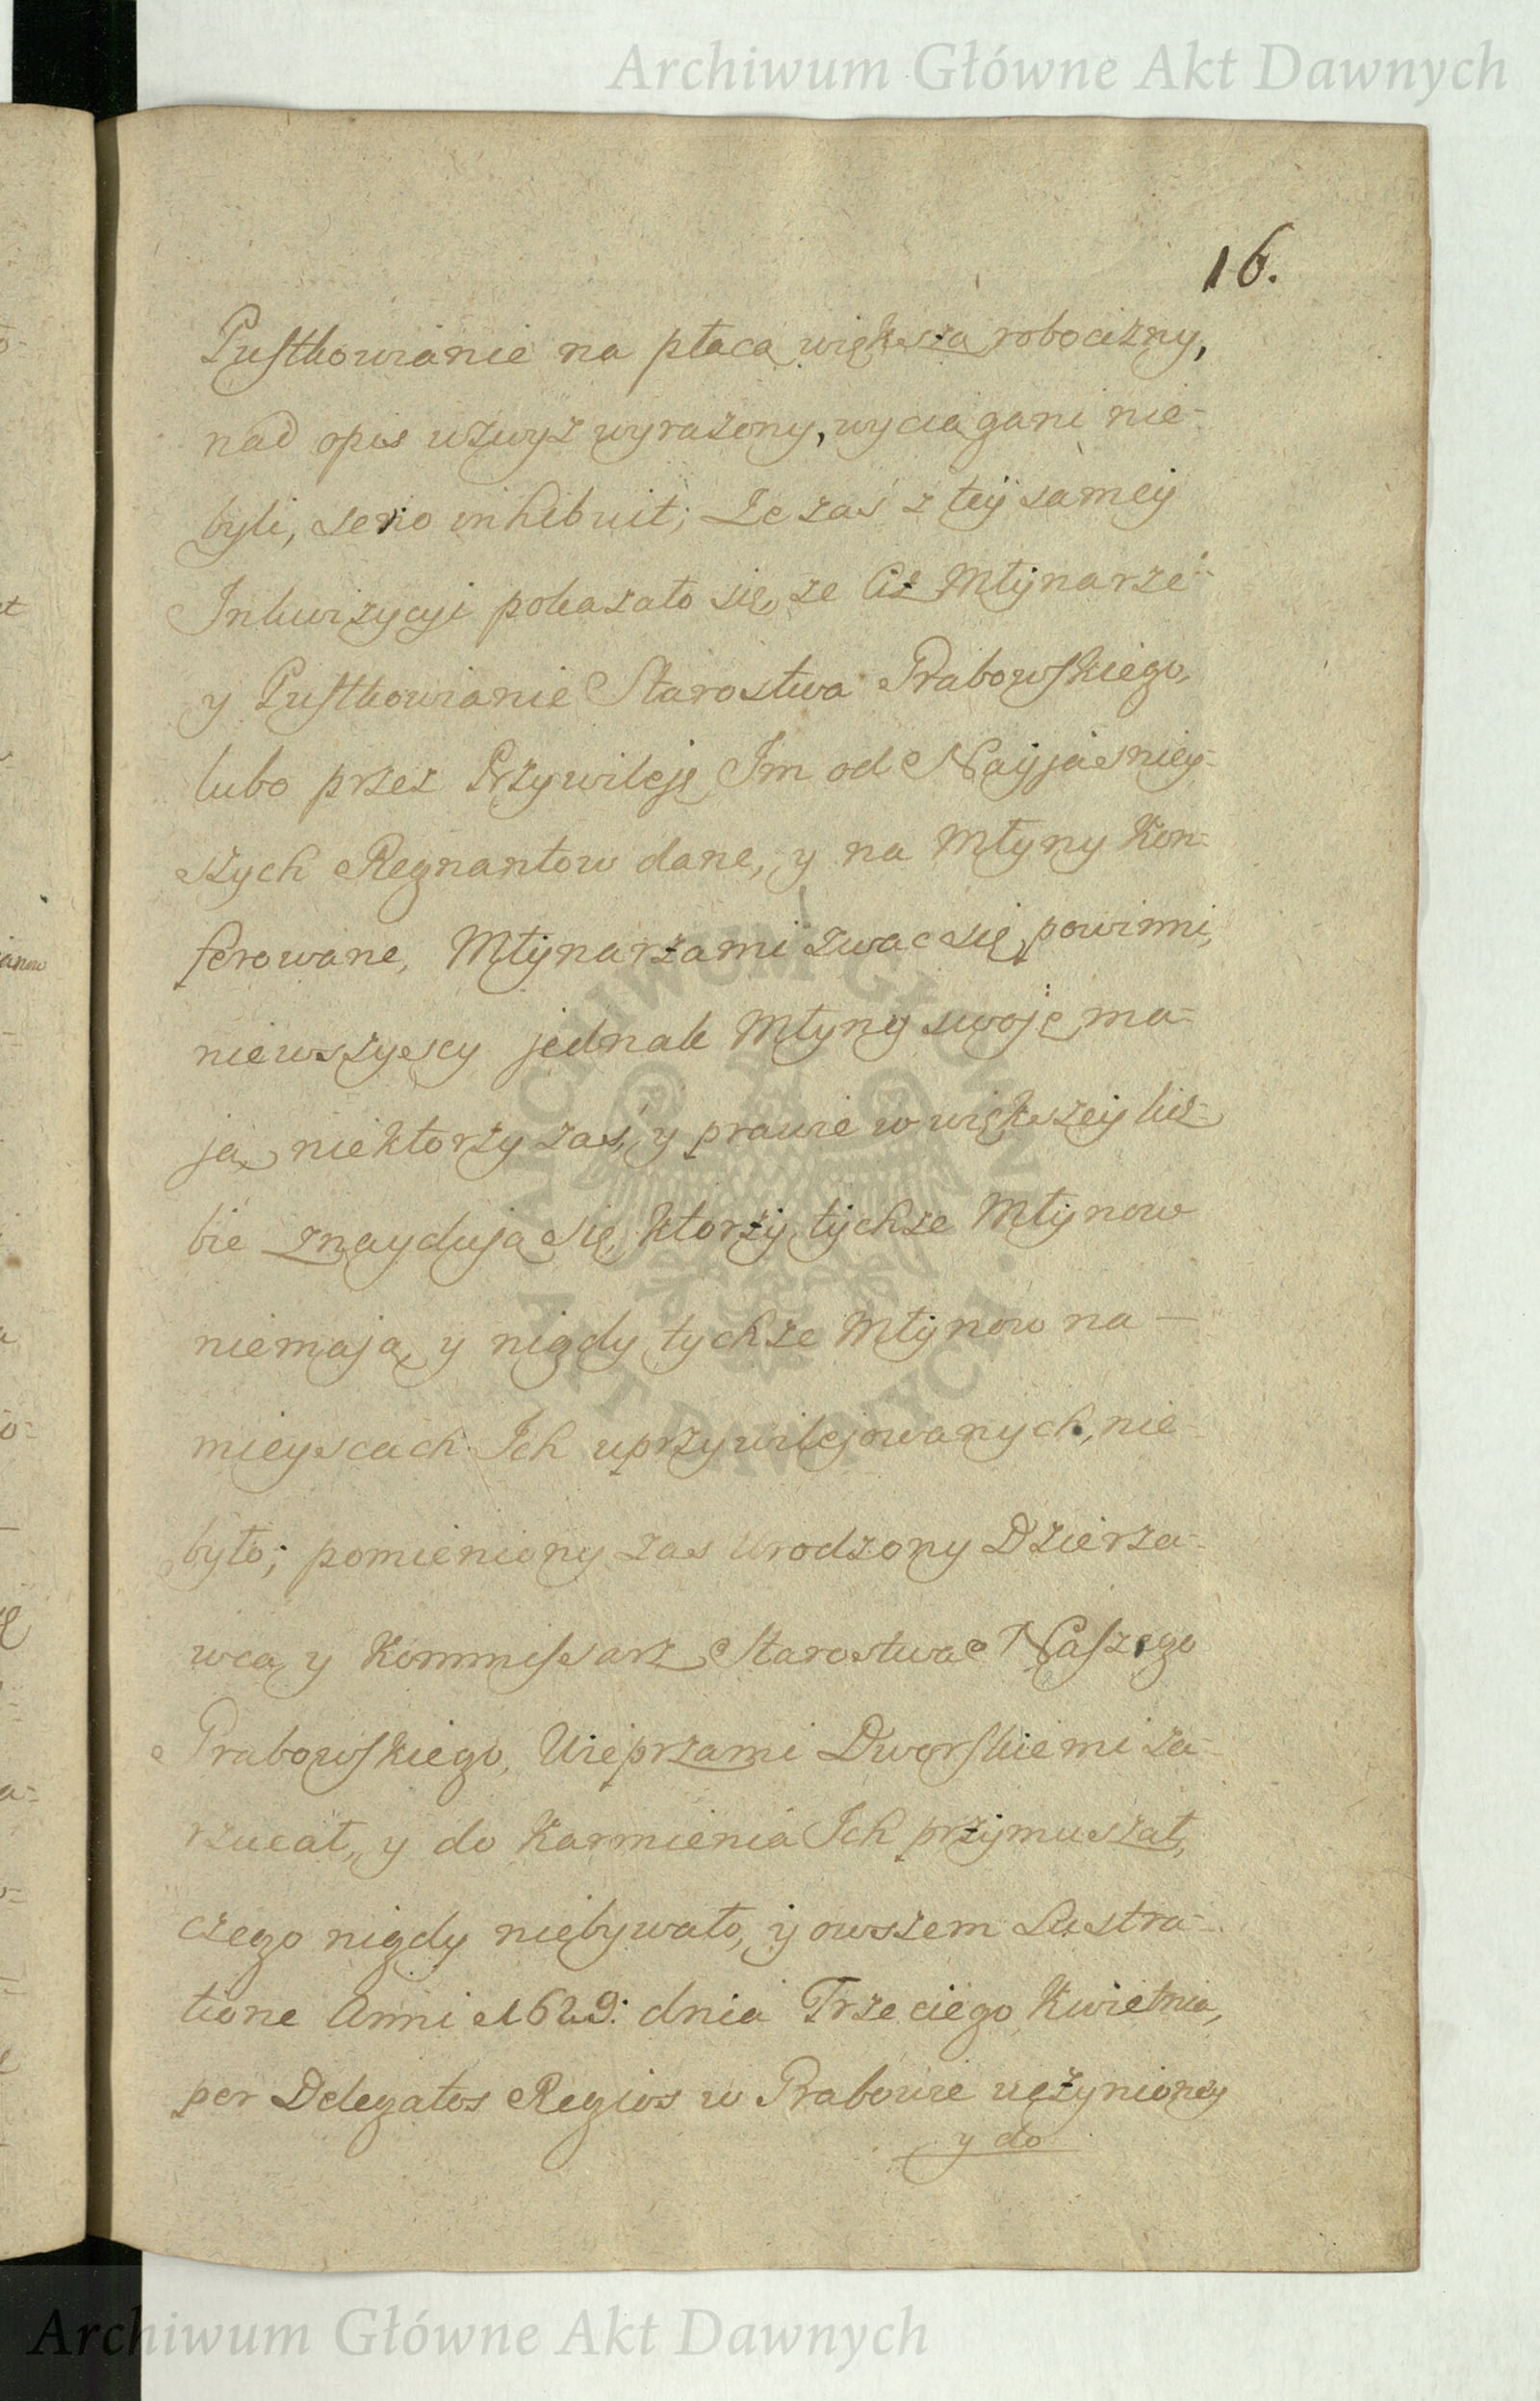 Archiwum Główne Akt Dawnych
16.
Pustkowianie na płacą większa robocizny,
nad opis wzwyż wyrażony, wyciągani nie-
byli, serio inhibuit; Że zaś z teÿ sameÿ
Inkwizycyi pokazało się, że Ciż Młÿnarze
y Pustkowianie Starostwa Grabowskiego,
lubo przez Przywileje Im od Nayjaśniey-
szych Regnantow dane, y na Młyny Kon-
ferowane, Młÿnarzami zwac się powinni,
niewszyscy jednak Młyny swoje ma-
ją, niektorzy zaś, y prawie w większeÿ licz-
bie znayduja się, ktorzÿ tÿchże Młÿnow
niemają, y nigdy tychże Młÿnow na —
mieyscach Ich uprzywilejowanych, nie-
było; pomieniony zas Urodzony Dzierża-
wca, y Kommissarz Starostwa Naszego
Grabowskiego, Wieprzami Dworskiemi za-
rzucał, y do Karmienia Ich przÿmuszał,
czego nigdy niebywało, ÿ owszem Lustra-
tione Anni 1629: dnia Trzeciego Kwietnia,
per Delegatos Regios w Grabowie uczynioney
y do
ARCHIWUM GŁÓWNE AKT DAWNYCH
Archiwum Główne Akt Dawnych